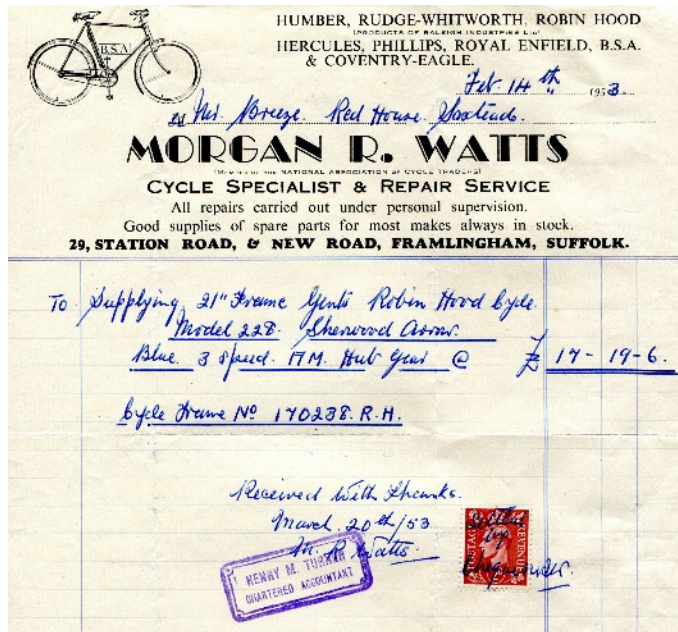 HUMBER, RUDGE-WHITWORTH, ROBIN HOOD
(PRODUCTS OF RALEIGH INDUSTRIES Ltd)
HERCULES, PHILLIPS, ROYAL ENFIELD, B.S.A.
& COVENTRY-EAGLE.
B.S.A.
Feb. 14th 1953.
Mr. Breeze. Red House. Saxtead.
MORGAN R. WATTS
(MEMBER OF THE NATIONAL ASSOCIATION OF CYCLE TRADERS)
CYCLE SPECIALIST & REPAIR SERVICE
All repairs carried out under personal supervision.
Good supplies of spare parts for most makes always in stock.
29, STATION ROAD, & NEW ROAD, FRAMLINGHAM, SUFFOLK.
To Supplying 21" Frame Gents Robin Hood Cycle.
Model 228. Sherwood Arrow.
Blue. 3 Speed. Hub Gear @ £ 17-19-6.
Cycle Frame No 170238. R.H.
Received With Thanks.
March. 20th/53
M. R Watts.
HENRY M. TURNER
CHARTERED ACCOUNTANT
POSTAGE REVENUE
Settled
by
Cheque